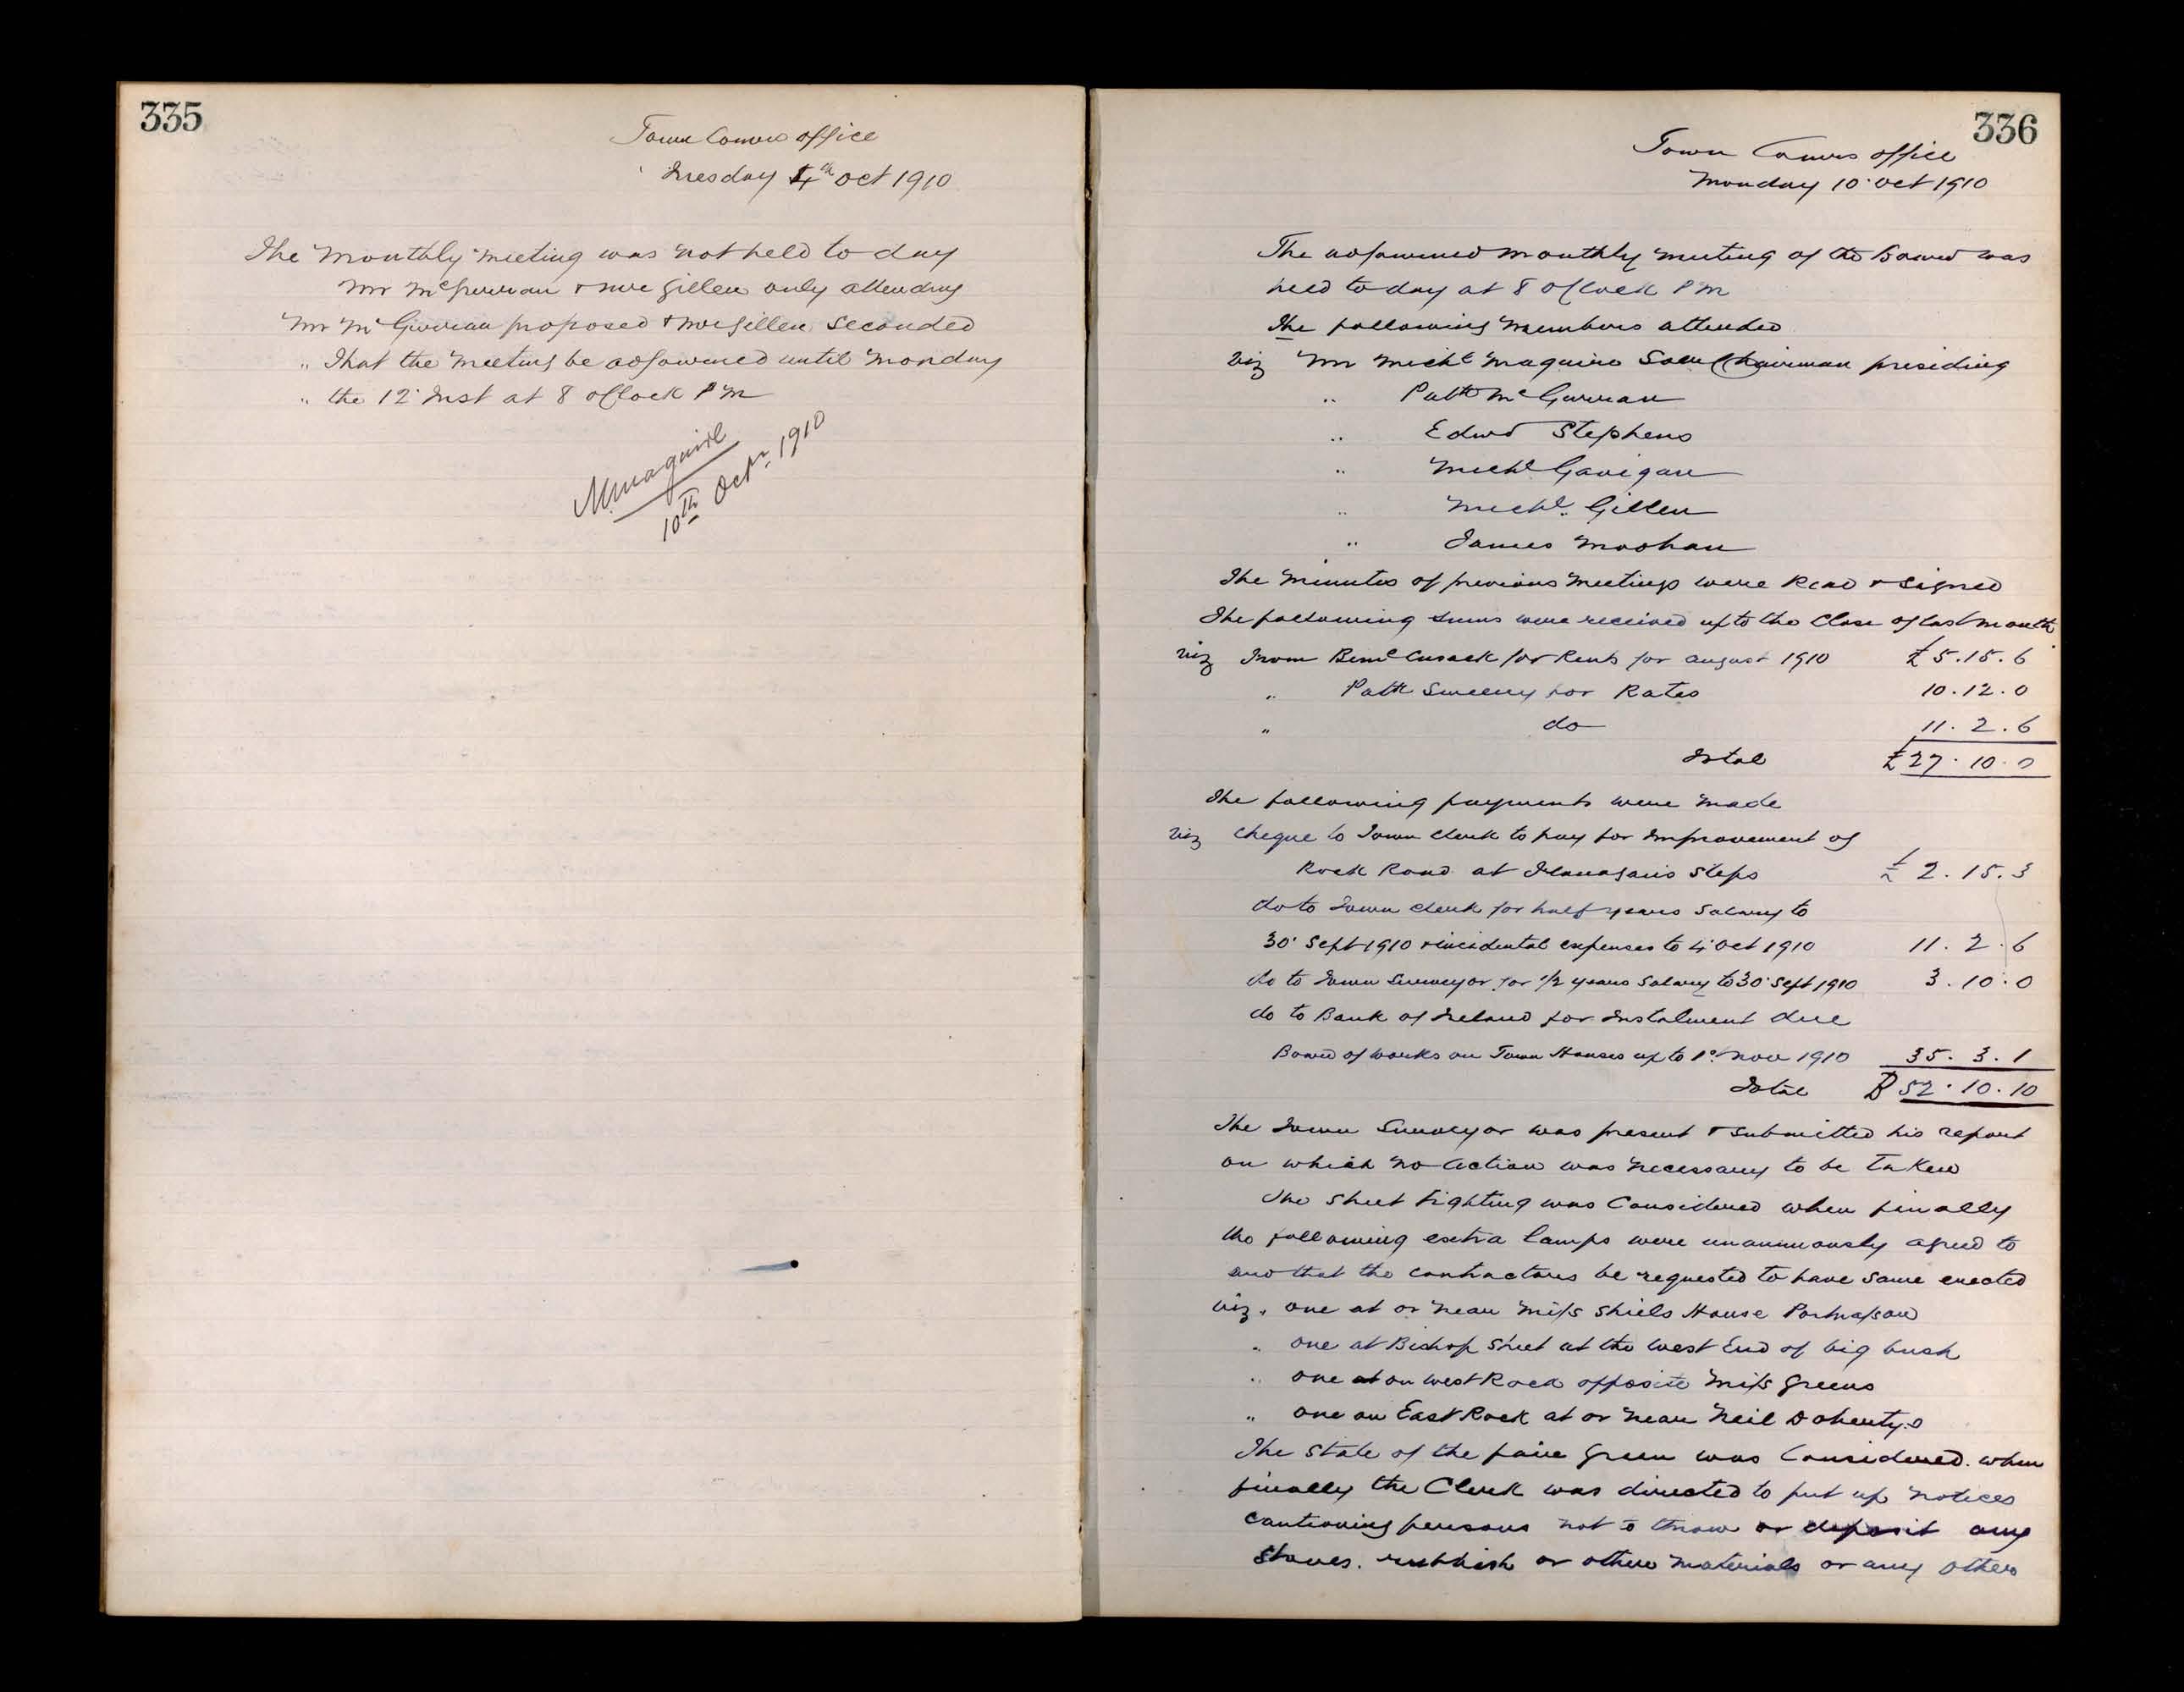 335
Town Comrs office
Tuesday 4th Oct 1910
The Monthly Meeting was not held to day
Mr McGurran & Mr Gillen only attending
Mr McGurran proposed & Mr Gillen Seconded
" That the Meeting be adjourned until Monday
" the 12 Inst at 8 oClock P M
M Maguire
10th Octr. 1910
336
Town Comrs office
Monday 10 Oct 1910
The adjourned Monthly Meeting of the Board was
held to day at 8 oClock P M
The following Members attended
viz Mr Michl Maguire Chairman presiding
" Patk McGurran
" Edwd Stephens
" Michl Gavigan
" Michl. Gillen
" James Moohan
The Minutes of previous Meetings were Read & Signed
The following sums were received up to the Close of last Month
viz From Bernd Cusack for Rents for August 1910 £5.15.6
" Patk Sweeny for Rates 10.12.0
" do 11.2.6
Total £27.10.0
The following payments were Made
viz Cheque to Town Clerk to pay for Improvement of
Rock Road at Flanagans Steps £2.15.3
do to Town Clerk for half years Salary to
30 Sept 1910 & incidental expenses to 4 Oct 1910 11.2.6
do to Town Surveyor for 1/2 years Salary to 30 Sept 1910 3.10.0
do to Bank of Ireland for Instalment due
Board of Works on Town Houses up to 1st Nov 1910 35.3.1
Total £52.10.10
The Town Surveyor was present & submitted his report
on which no Action was necessary to be Taken
The Street Lighting was Considered when finally
the following extra lamps were unanimously agreed to
and that the contractors be requested to have same erected
viz. one at or near Miss Shiels House Portnason
" one at Bishop Street at the West End of big bush
" one at on West Rock opposite Miss Greens
" one on East Rock at or near Neil Doherty's
The State of the fair Green was Considered. when
finally the Clerk was directed to put up Notices
Cautioning persons not to throw or deposit any
Stones. rubbish or other Materials or any other